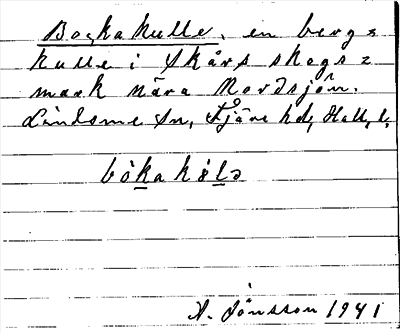 Bockakulle, en bergs=
kulle i Skårs skogs=
mark nära Nordsjön.
Lindome Sn, Fjäre hd, Hall. l.
bòka kølə
A. Jönsson 1941